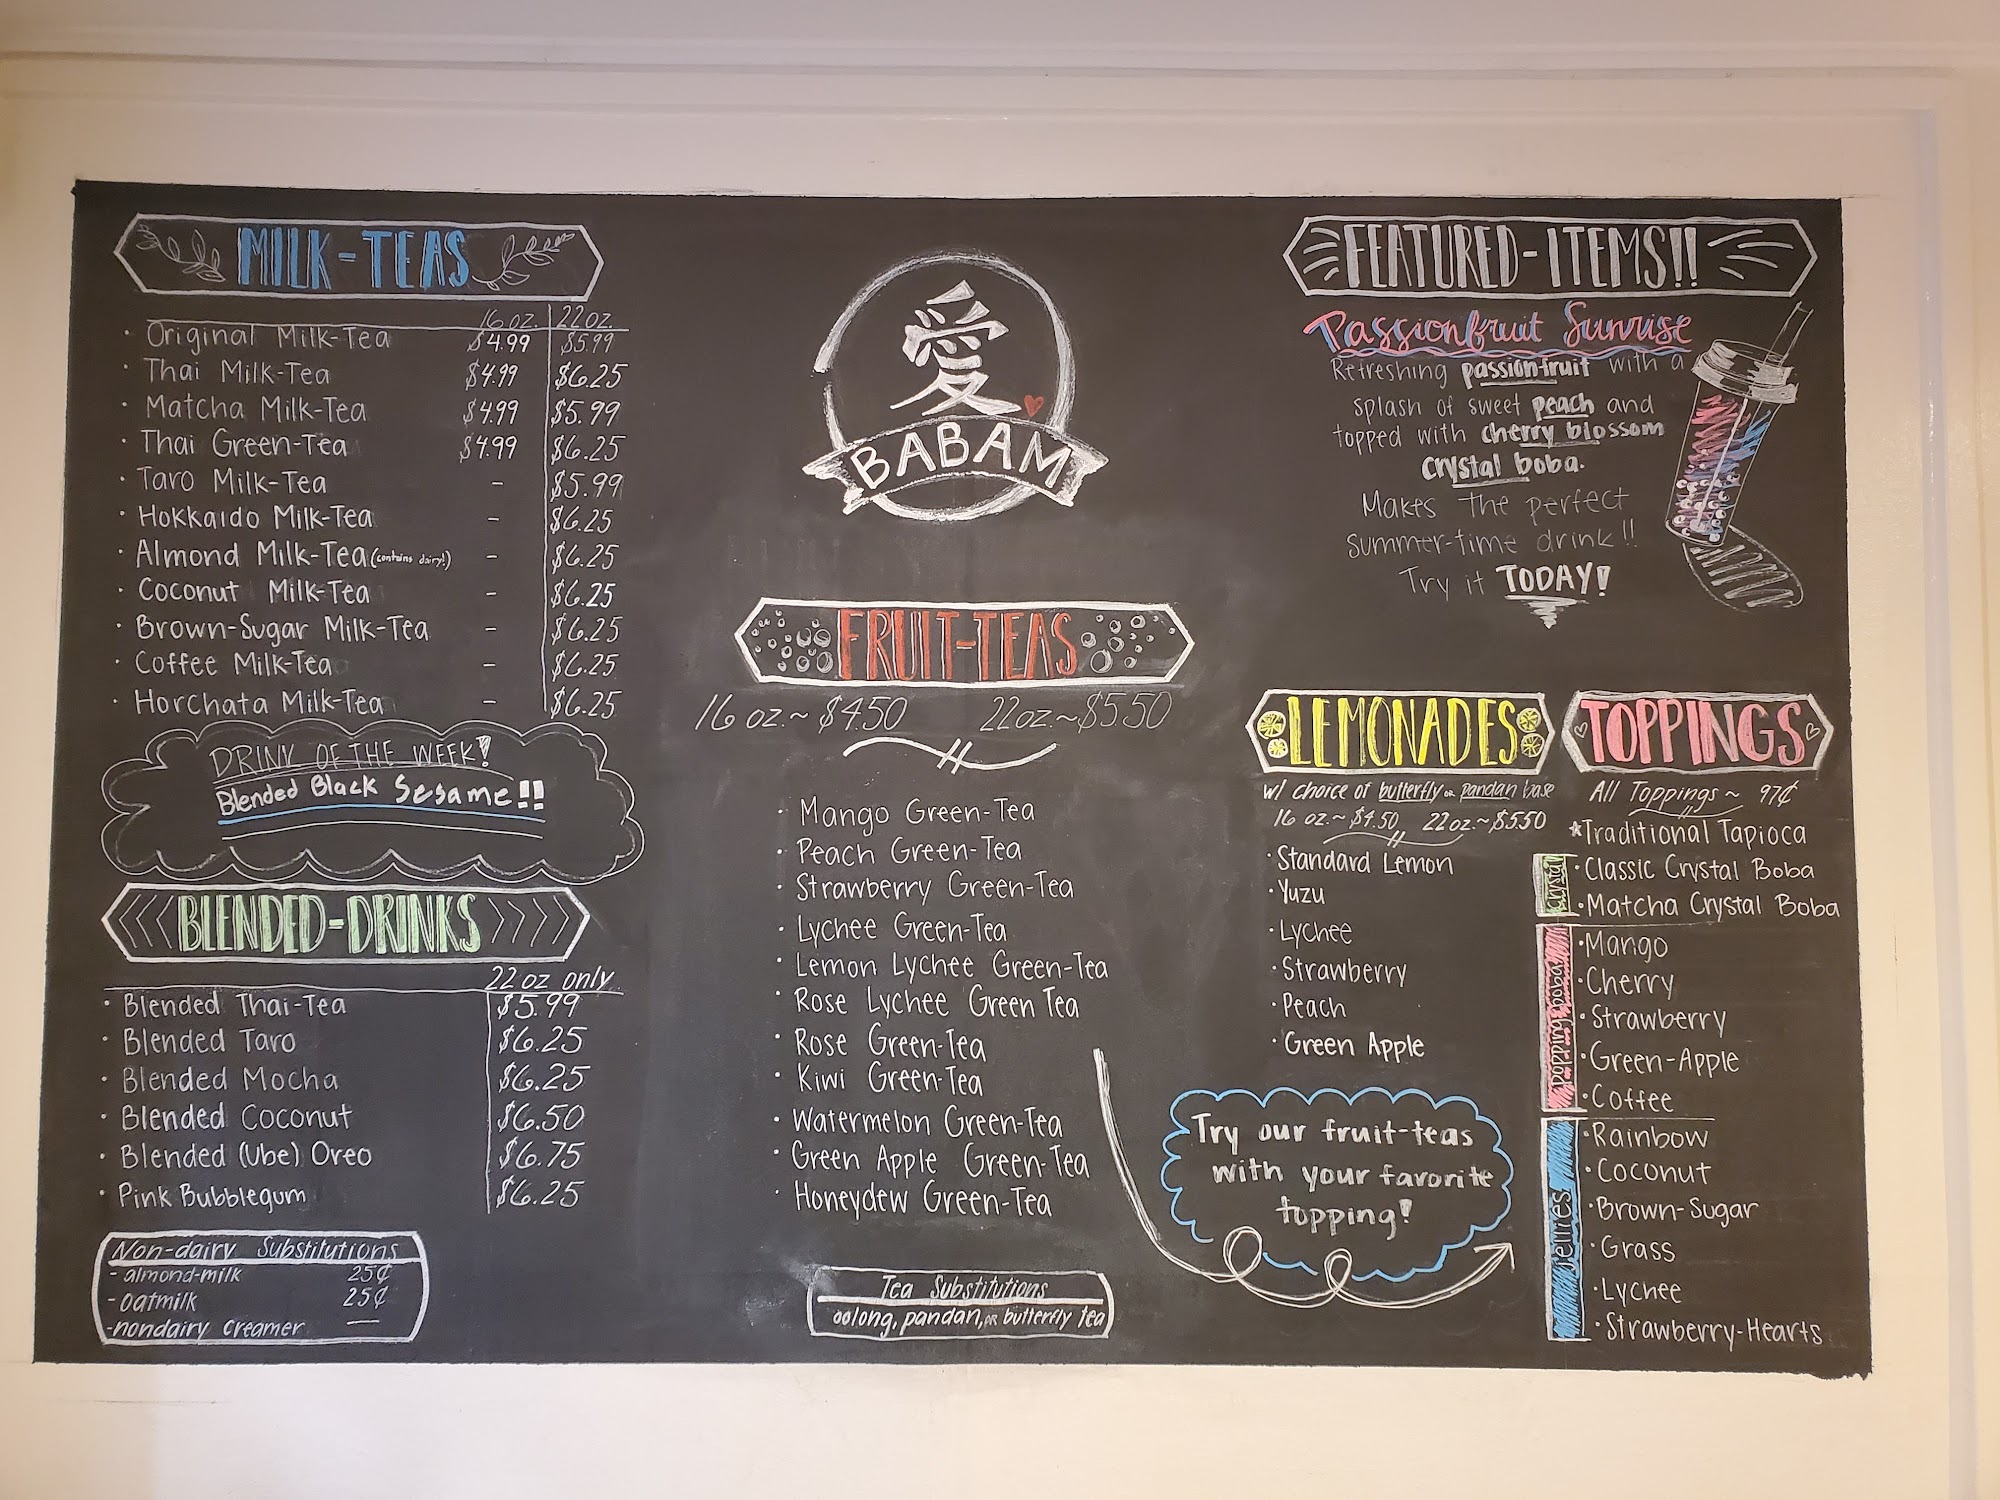 MILK-TEAS
16 oz. 22 oz.
· Original Milk-Tea $4.99 $5.99
· Thai Milk-Tea $4.99 $6.25
· Matcha Milk-Tea $4.99 $5.99
· Thai Green-Tea $4.99 $6.25
· Taro Milk-Tea - $5.99
· Hokkaido Milk-Tea - $6.25
· Almond Milk-Tea (contains dairy!) - $6.25
· Coconut Milk-Tea - $6.25
· Brown-Sugar Milk-Tea - $6.25
· Coffee Milk-Tea - $6.25
· Horchata Milk-Tea - $6.25
DRINK OF THE WEEK!
Blended Black Sesame!!
BLENDED-DRINKS
22 oz only
· Blended Thai-Tea $5.99
· Blended Taro $6.25
· Blended Mocha $6.25
· Blended Coconut $6.50
· Blended (Ube) Oreo $6.75
· Pink Bubblegum $6.25
Non-dairy Substitutions
- almond-milk 25¢
- oatmilk 25¢
- nondairy creamer —
愛
BABAM
FRUIT-TEAS
16 oz. ~ $4.50 22oz. ~ $5.50
· Mango Green-Tea
· Peach Green-Tea
· Strawberry Green-Tea
· Lychee Green-Tea
· Lemon Lychee Green-Tea
· Rose Lychee Green Tea
· Rose Green-Tea
· Kiwi Green-Tea
· Watermelon Green-Tea
· Green Apple Green-Tea
· Honeydew Green-Tea
Tea Substitutions
oolong, pandan, OR butterfly tea
FEATURED-ITEMS!!
Passionfruit Sunrise
Refreshing passionfruit with a
splash of sweet peach and
topped with cherry blossom
crystal boba.
Makes the perfect
summer-time drink!!
Try it TODAY!
LEMONADES
w/ choice of butterfly or pandan base
16 oz. ~ $4.50 22 oz. ~ $5.50
· Standard Lemon
· Yuzu
· Lychee
· Strawberry
· Peach
· Green Apple
Try our fruit-teas
with your favorite
topping!
TOPPINGS
All Toppings ~ 97¢
*Traditional Tapioca
Crystal
· Classic Crystal Boba
· Matcha Crystal Boba
popping boba
· Mango
· Cherry
· Strawberry
· Green-Apple
· Coffee
jellies
· Rainbow
· Coconut
· Brown-Sugar
· Grass
· Lychee
· Strawberry-Hearts